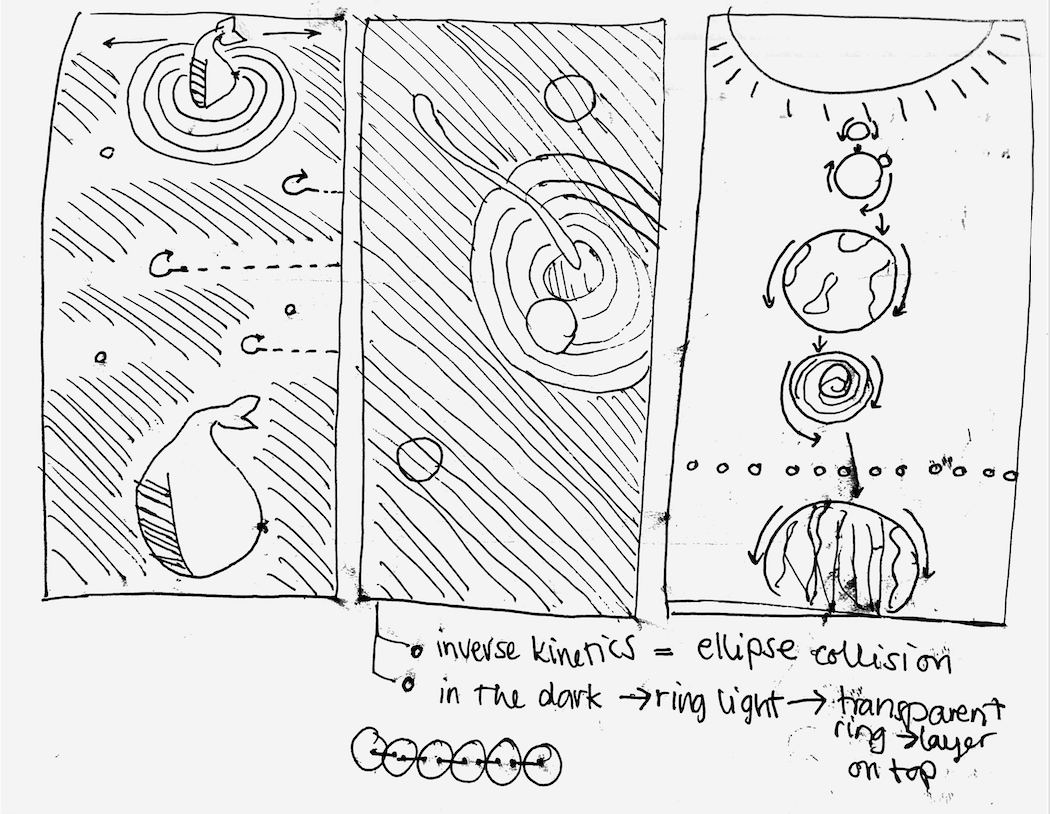 inverse kinetics = ellipse collision
in the dark → ring light → transparent
ring → layer
on top